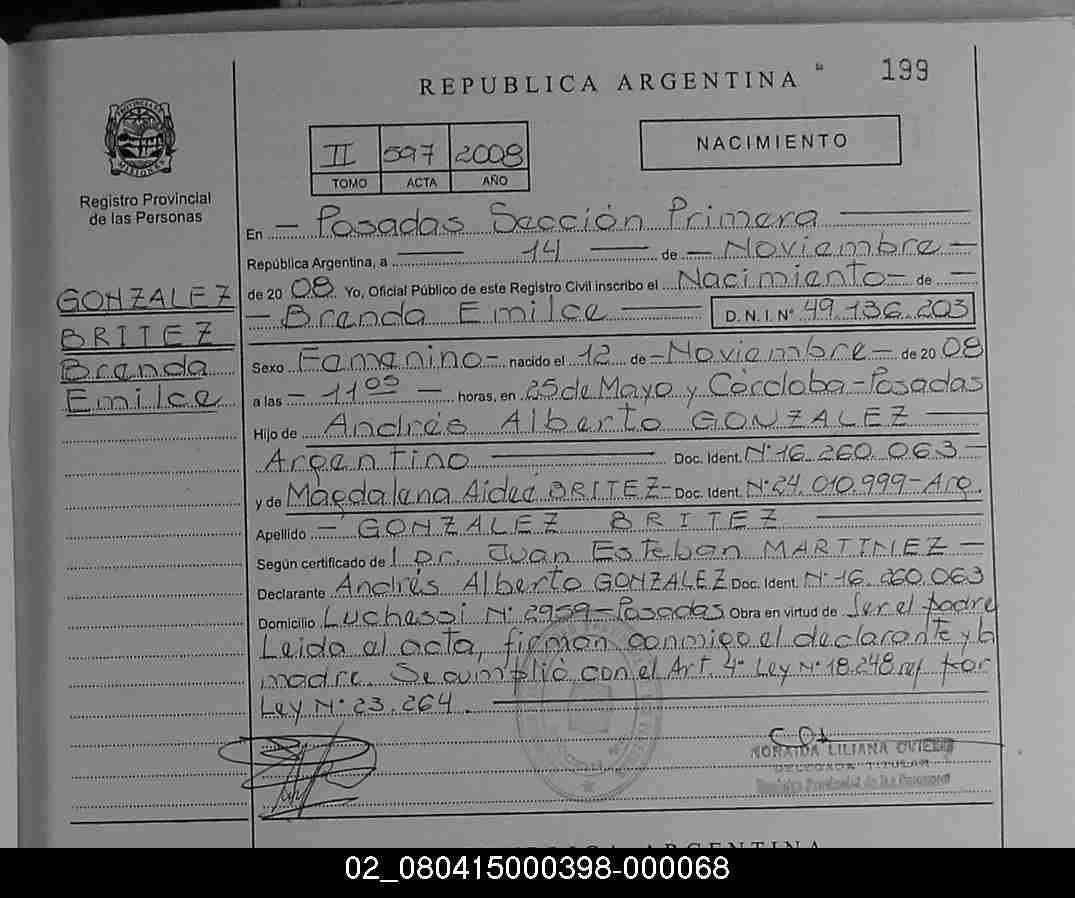 REPUBLICA ARGENTINA
199
PROVINCIA DE MISIONES
Registro Provincial
de las Personas
II 597 2008
TOMO ACTA AÑO
NACIMIENTO
GONZALEZ
BRITEZ
Brenda
Emilce
En — Posadas Sección Primera —
República Argentina, a — 14 — de — Noviembre —
de 20 08. Yo, Oficial Público de este Registro Civil inscribo el Nacimiento — de —
— Brenda Emilce — D.N.I. N° 49.136.203
Sexo Femenino — nacido el 12 de — Noviembre — de 20 08
a las — 11 05 — horas, en 25 de Mayo y Córdoba - Posadas
Hijo de Andrés Alberto GONZALEZ —
Argentino — Doc. Ident. N° 16.260.063 —
y de Magdalena Aideé BRITEZ - Doc. Ident. N° 24.010.999 - Arg.
Apellido — GONZALEZ BRITEZ —
Según certificado del Dr. Juan Esteban MARTINEZ —
Declarante Andrés Alberto GONZALEZ Doc. Ident. N° 16.260.063
Domicilio Luchessi N° 2959 - Posadas Obra en virtud de Ser el padre
Leida el acta, firman conmigo el declarante y la
madre. Se cumplió con el Art. 4° Ley N° 18.248 ref. por
Ley N° 23.264. —
NORAIDA LILIANA OVIEDO
DELEGADA TITULAR
Registro Provincial de las Personas
REPUBLICA ARGENTINA
02_080415000398-000068